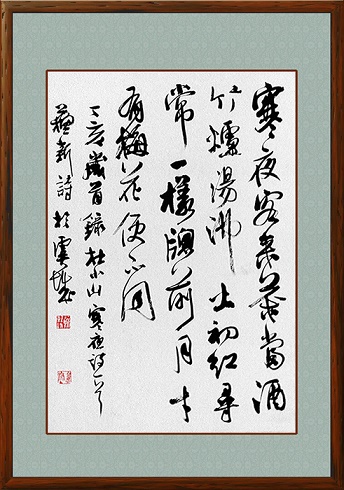 寒夜客来茶當酒
竹爐湯沸火初红尋
常一樣窗前月才
有梅花便不同
丁亥歲首録杜小山寒夜诗一首
新詩於